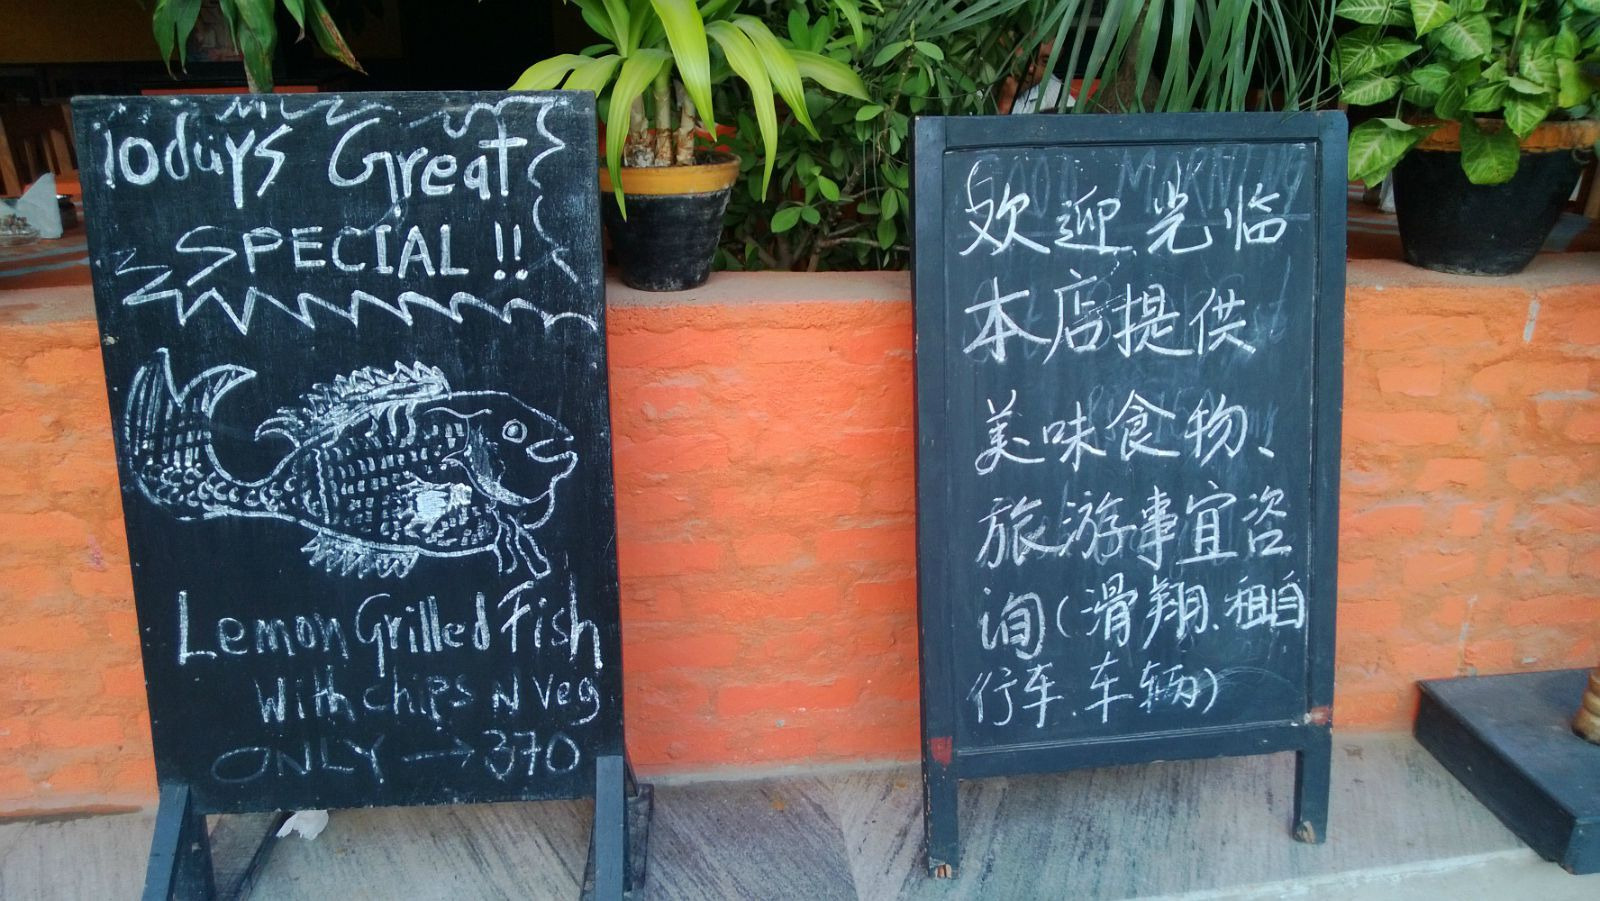 Todays Great
SPECIAL!!
Lemon Grilled Fish
With chips N Veg
ONLY → 370
GOOD MORNING
欢迎光临
本店提供
美味食物、
旅游事宜咨
询(滑翔、租自
行车.车辆)